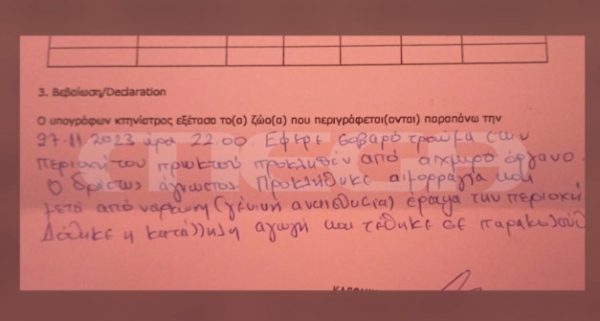 3. Βεβαίωση/Declaration
Ο υπογράφων κτηνίατρος εξέτασα το(α) ζώο(α) που περιγράφεται(ονται) παραπάνω την
27.11.2023 ωρα 22.00 Εφερε σοβαρό τραύμα στην
περιοχή του πρωκτού προκληθέν από αιχμηρό όργανο.
Ο δράστης άγνωστος. Προκλήθηκε αιμορραγία και
μετά από νάρκωση (γενική αναισθησία) έραψα την περιοχή
Δόθηκε η κατάλληλη αγωγή και τέθηκε σε
MEGA